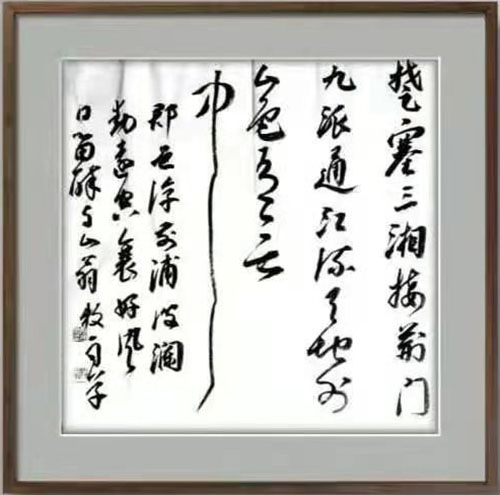 楚塞三湘接荆门
九派通江流天地外
山色有无
中
郡邑浮前浦波澜
动远空襄好风
日留醉与山翁